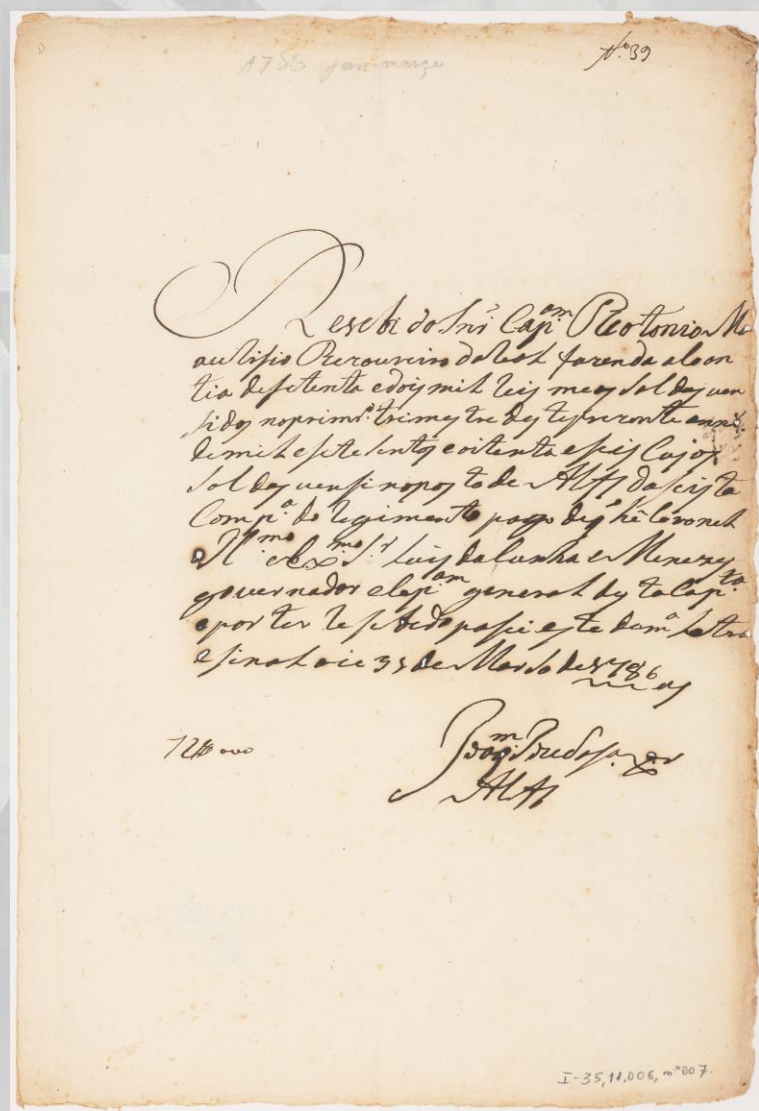 Nº 39
1786 jan-março
Resebi do Snr̃ Cap.am Theotonio M
aurisio Thezoureiro da Real fazenda a coan
tia de setenta e dois mil reis meos soldos ven
sidos no prim.ro trimestre deste prezente anno
de mil e sete sentos e oitenta e seis Cujos
soldos vensi no posto de Alfs da seista
Comp.a do regimento pago de q' he Coronel
o Il.mo e Ex.mo Sr Luis da Cunha e Menezes
governador e Cap.am general desta Cap.ta
e por ter resebido pasei este da m.a Letra
e sinal oie 31 de Marso de 1786
72$000
Joaq.m Joze da S.a Xer
Alfs
I-35,11,006, nº 007.